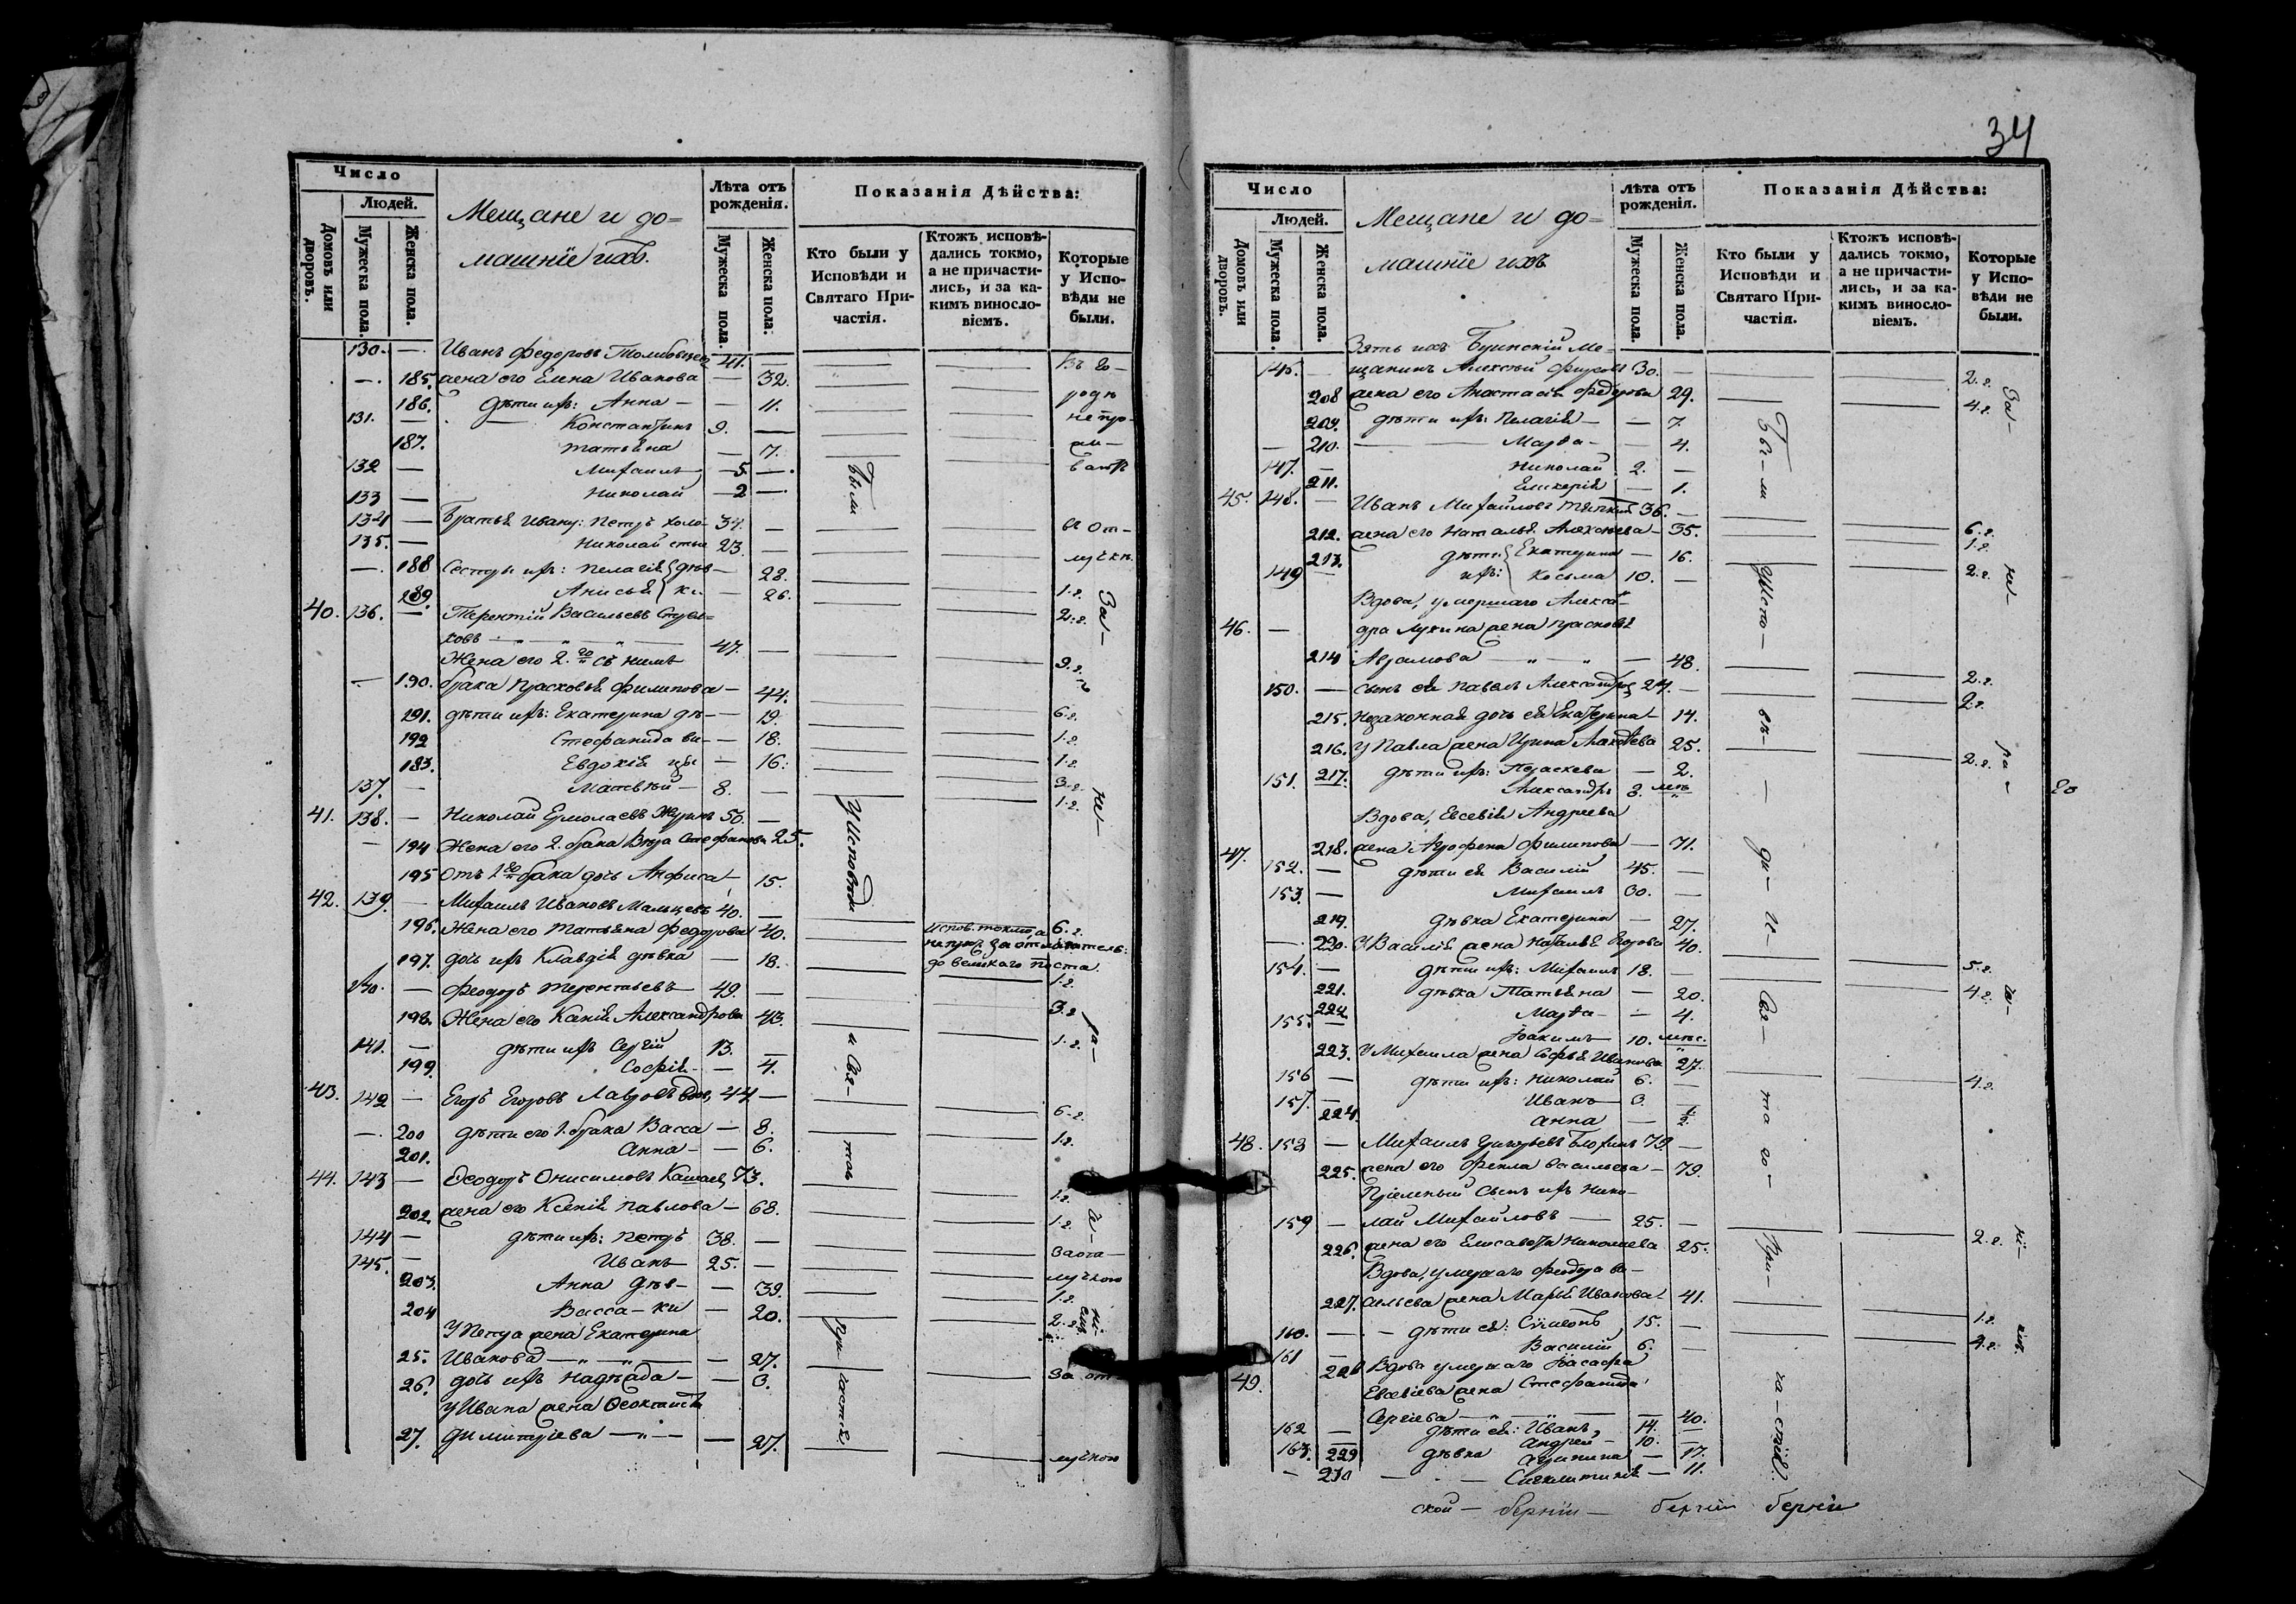 34
Число
Людей.
Домовъ или дворовъ.
Мужеска пола.
Женска пола.
Мещане и до=
машніе ихъ.
Лѣта отъ рожденія.
Мужеска пола.
Женска пола.
Показанія Дѣйства:
Кто были у Исповѣди и Святаго Причастія.
Ктожъ исповѣдались токмо, а не причастились, и за какимъ винословіемъ.
Которые у Исповѣди не были.
130. — Иванъ Федоровъ 41. —
— 185. жена его Елена Иванова — 32.
186. дѣти ихъ: Анна — — 11.
131. — Константинъ 9. —
187. Татьяна — 7.
132 — Михаилъ 5. —
133 — Николай 2 —
134 — Братья Ивану: Петръ холо- 34. —
135. — Николай стые 23. —
— 188 Сестры ихъ: Пелагія дѣв- — 28.
189. Анисья ки — 26.
40. 136. — Терентій Васильевъ
ковъ 47. —
Жена его 2.го съ нимъ
— 190. брака Прасковья Филипова — 44.
191. дѣти ихъ: Екатерина дѣ- — 19.
192 Стефанида ви- — 18.
183. Евдокія цы — 16.
137. — Матвѣй — 8. —
41. 138. — Николай Ермолаевъ 50. —
— 194 Жена его 2. брака Вѣра Стефанова 25.
195 Отъ 1го брака дочь Анфиса — 15.
42. 139. — Михаилъ Ивановъ Мальцевъ 40. —
196. Жена его Татьяна Федорова 40.
197. дочь ихъ Клавдія дѣвка — 18.
140. — Феодоръ Терентьевъ 49. —
198. Жена его Ксенія Александрова 43.
141. — дѣти ихъ Сергій 13. —
199. Софія — — 4.
43. 142 — Егоръ Егоровъ Лавровъ вдов, 44 —
— 200 дѣти его 1. брака Васса — 8.
201. Анна — — 6.
44. 143 — Ѳеодоръ Онисимовъ 73.
202. жена его Ксенія Павлова — 68.
144 — дѣти ихъ: Петръ 38. —
145. — Иванъ 25. —
203. Анна дѣв- — 39.
204 Васса — ки — 20.
У Петра жена Екатерина
25. Иванова — 27.
26. дочь ихъ Надежда — — 3.
У Ивана жена Ѳеоктиста
27. Димитріева — — 27.
Были
У Исповѣди
и Свя-
таго
При-
частія
испов. токмо, а
не прич. за отлагатель:
до великаго поста.
Въ го-
родѣ
не про-
жи-
ваютъ
Въ От-
лучкѣ.
1.г.
2.г.
9.г.
6.г.
1.г.
1.г.
3.г.
1.г.
6.г.
1.г.
3.г.
1.г.
6.г.
1.г.
1.г.
1.г.
За от-
лучкою
1.г.
2.г.
За от
лучкою
За-
не-
ра-

Число
Людей.
Домовъ или дворовъ.
Мужеска пола.
Женска пола.
Мещане и до=
машніе ихъ
Лѣта отъ рожденія.
Мужеска пола.
Женска пола.
Показанія Дѣйства:
Кто были у Исповѣди и Святаго Причастія.
Ктожъ исповѣдались токмо, а не причастились, и за какимъ винословіемъ.
Которые у Исповѣди не были.
Зять ихъ Буинскій Ме-
146. — щанинъ Алексѣй 30. —
208 жена его Анастасія Федорова 29.
209. дѣти ихъ: Пелагія — — 7.
— 210. Марѳа — — 4.
147. — Николай 2. —
211. Гликерія — 1.
45. 148. — Иванъ Михайловъ 36. —
212. жена его Наталья Алексѣева — 35.
213. дѣти Екатерина — 16.
149 — ихъ: Козьма 10. —
Вдова, умершаго Алексан-
46. — дра Лукина жена Прасковья
214 Абрамова — 48.
150. — сынъ ея Павелъ Александръ 24. —
215. Незаконная дочь ея Екатерина — 14.
216. У Павла жена Ирина Яковлева 25.
217. дѣти ихъ: Параскева — 2.
151. Александръ 8. мѣс.
Вдова, Евсевія Андреева
47. 218. жена Агрофена Филипова — 71.
152. — дѣти ея Василій 45. —
153. — Михаилъ 30. —
219. дѣвка Екатерина — 27.
— 220. У Василія жена Наталья Егорова 40.
154. — дѣти ихъ: Михаилъ 18. —
221. дѣвка Татьяна — 20.
222. Марѳа — — 4.
155. — Іоакимъ 10. мѣс.
223. У Михаила жена Софья Иванова 27.
156 — дѣти ихъ: Николай 6. —
157. — Иванъ 3. —
224. Анна — ½
48. 158 — Михаилъ Григорьевъ Блохинъ 79. —
225. жена его Фекла Васильева — 79.
Пріемный сынъ ихъ Нико-
159 — лай Михайловъ — 25. —
226. жена его Елисавета Николаева 25.
Вдова, умершаго Феодора Ва-
227. сильева жена Марія Иванова 41.
160. — дѣти ея: Сѵмеонъ 15. —
161 — Василій 6. —
49. 228 Вдова умершаго Іоасафа
Евсевіева жена Стефанида
Сергіева — — 40.
162 — дѣти ея: Иванъ, 14. —
163. — Андрей — 10. —
229 дѣвка Агрипина — 17.
— 230 Синклитикія — 11.
Бы-ли
У Испо-
вѣ-
ди
и-
Свя-
та го-
При-
ча-стія.
2.г.
4.г.
6.г.
1.г.
2.г.
2.г.
2.г.
2.г.
5.г.
4.г.
4.г.
2.г.
1.г.
4.г.
За-
не-
ра-
ской — берніи — берніи берніи